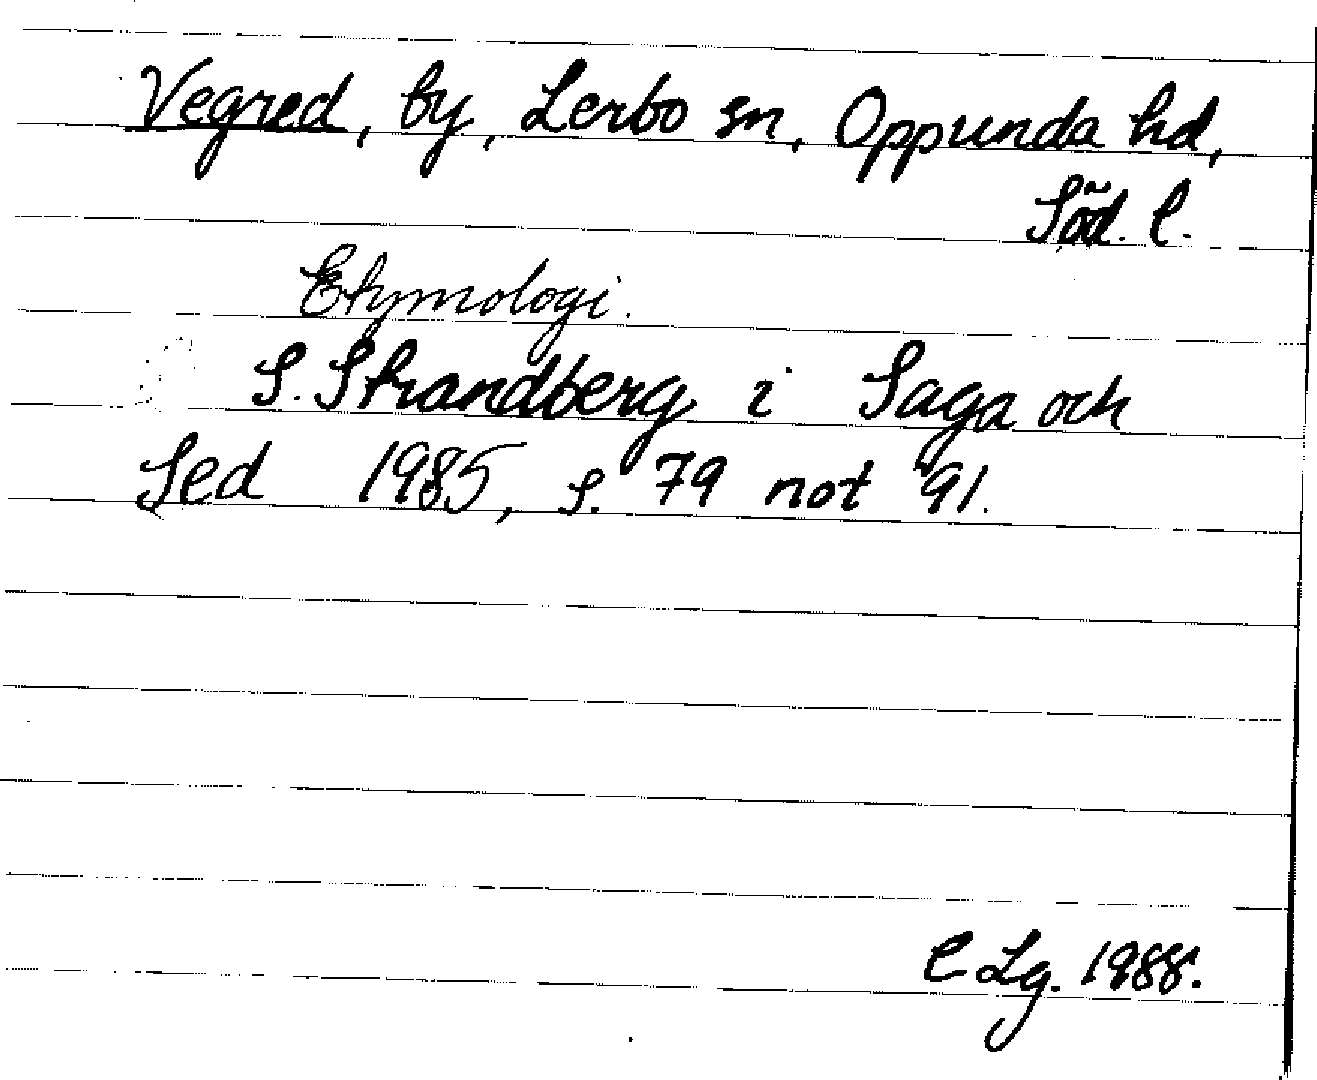 Vegred, by, Lerbo sn, Oppunda hd,
Söd. l.
Etymologi.
S. Strandberg i Saga och
Sed 1985, s. 79 not 91.
C Lg. 1988.